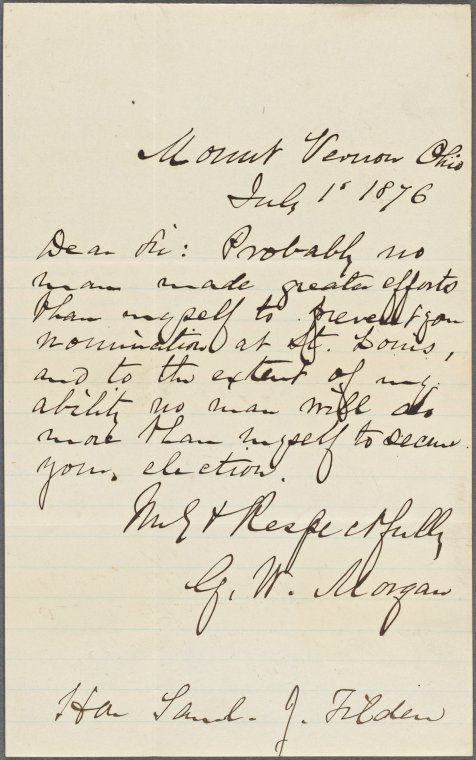 Mount Vernon Ohio
July 1st 1876
Dear Sir: Probably no
man made greater efforts
than myself to prevent you
nomination at St. Louis,
and to the extent of my
ability no man will do
more than myself to secure
your election.
& Respectfully
G. W. Morgan
Hon Saml. J. Tilden